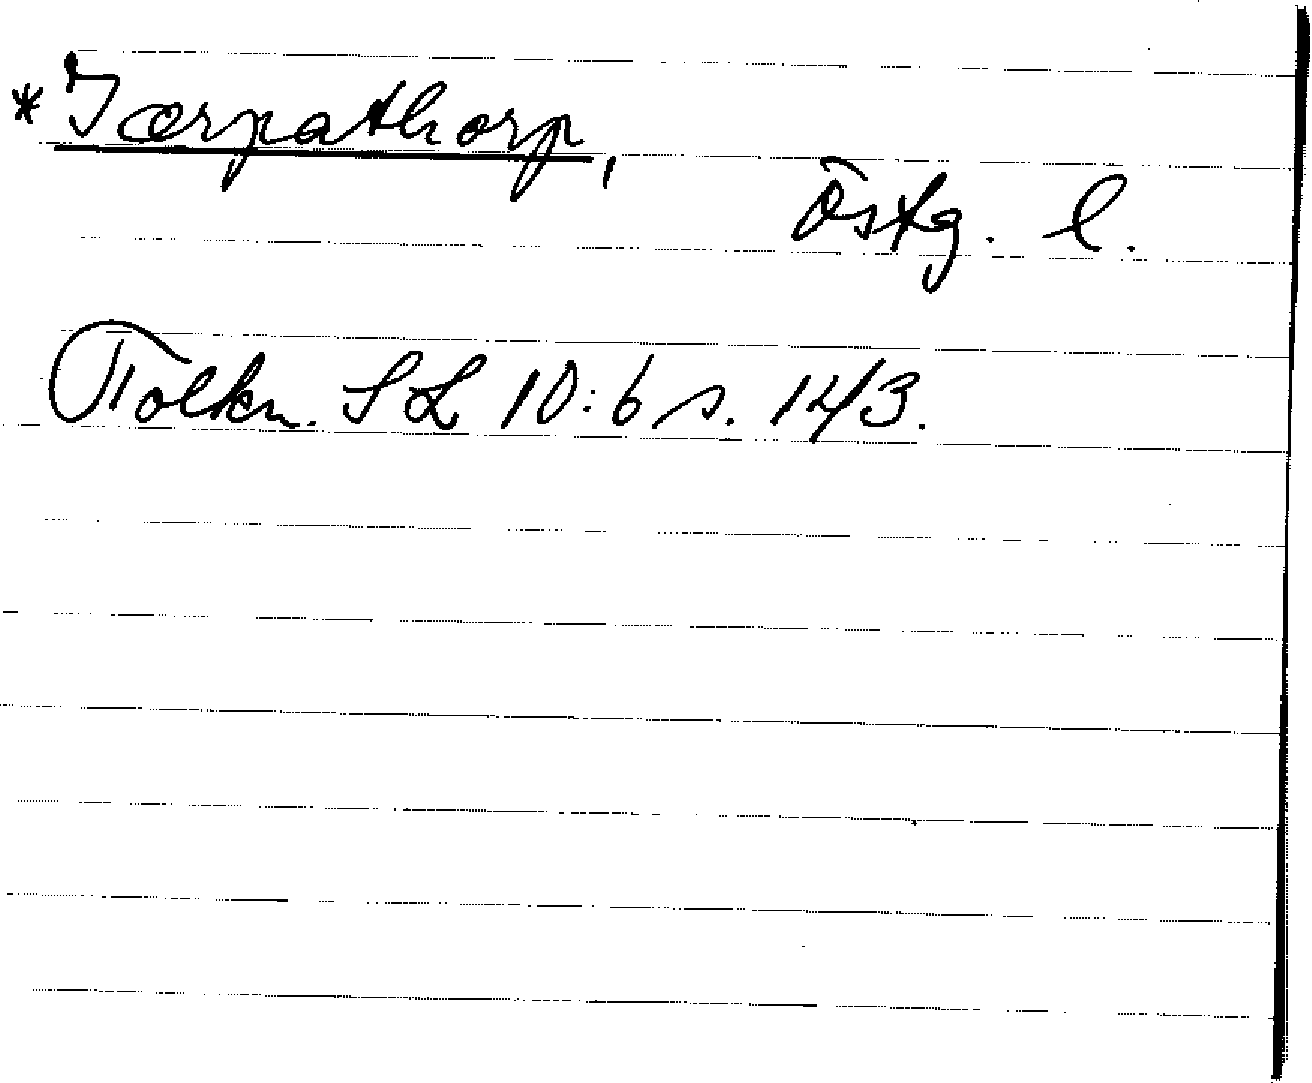 *Iærpathorp,
Östg. l.
Tolkn. SL 10:6 s. 143.